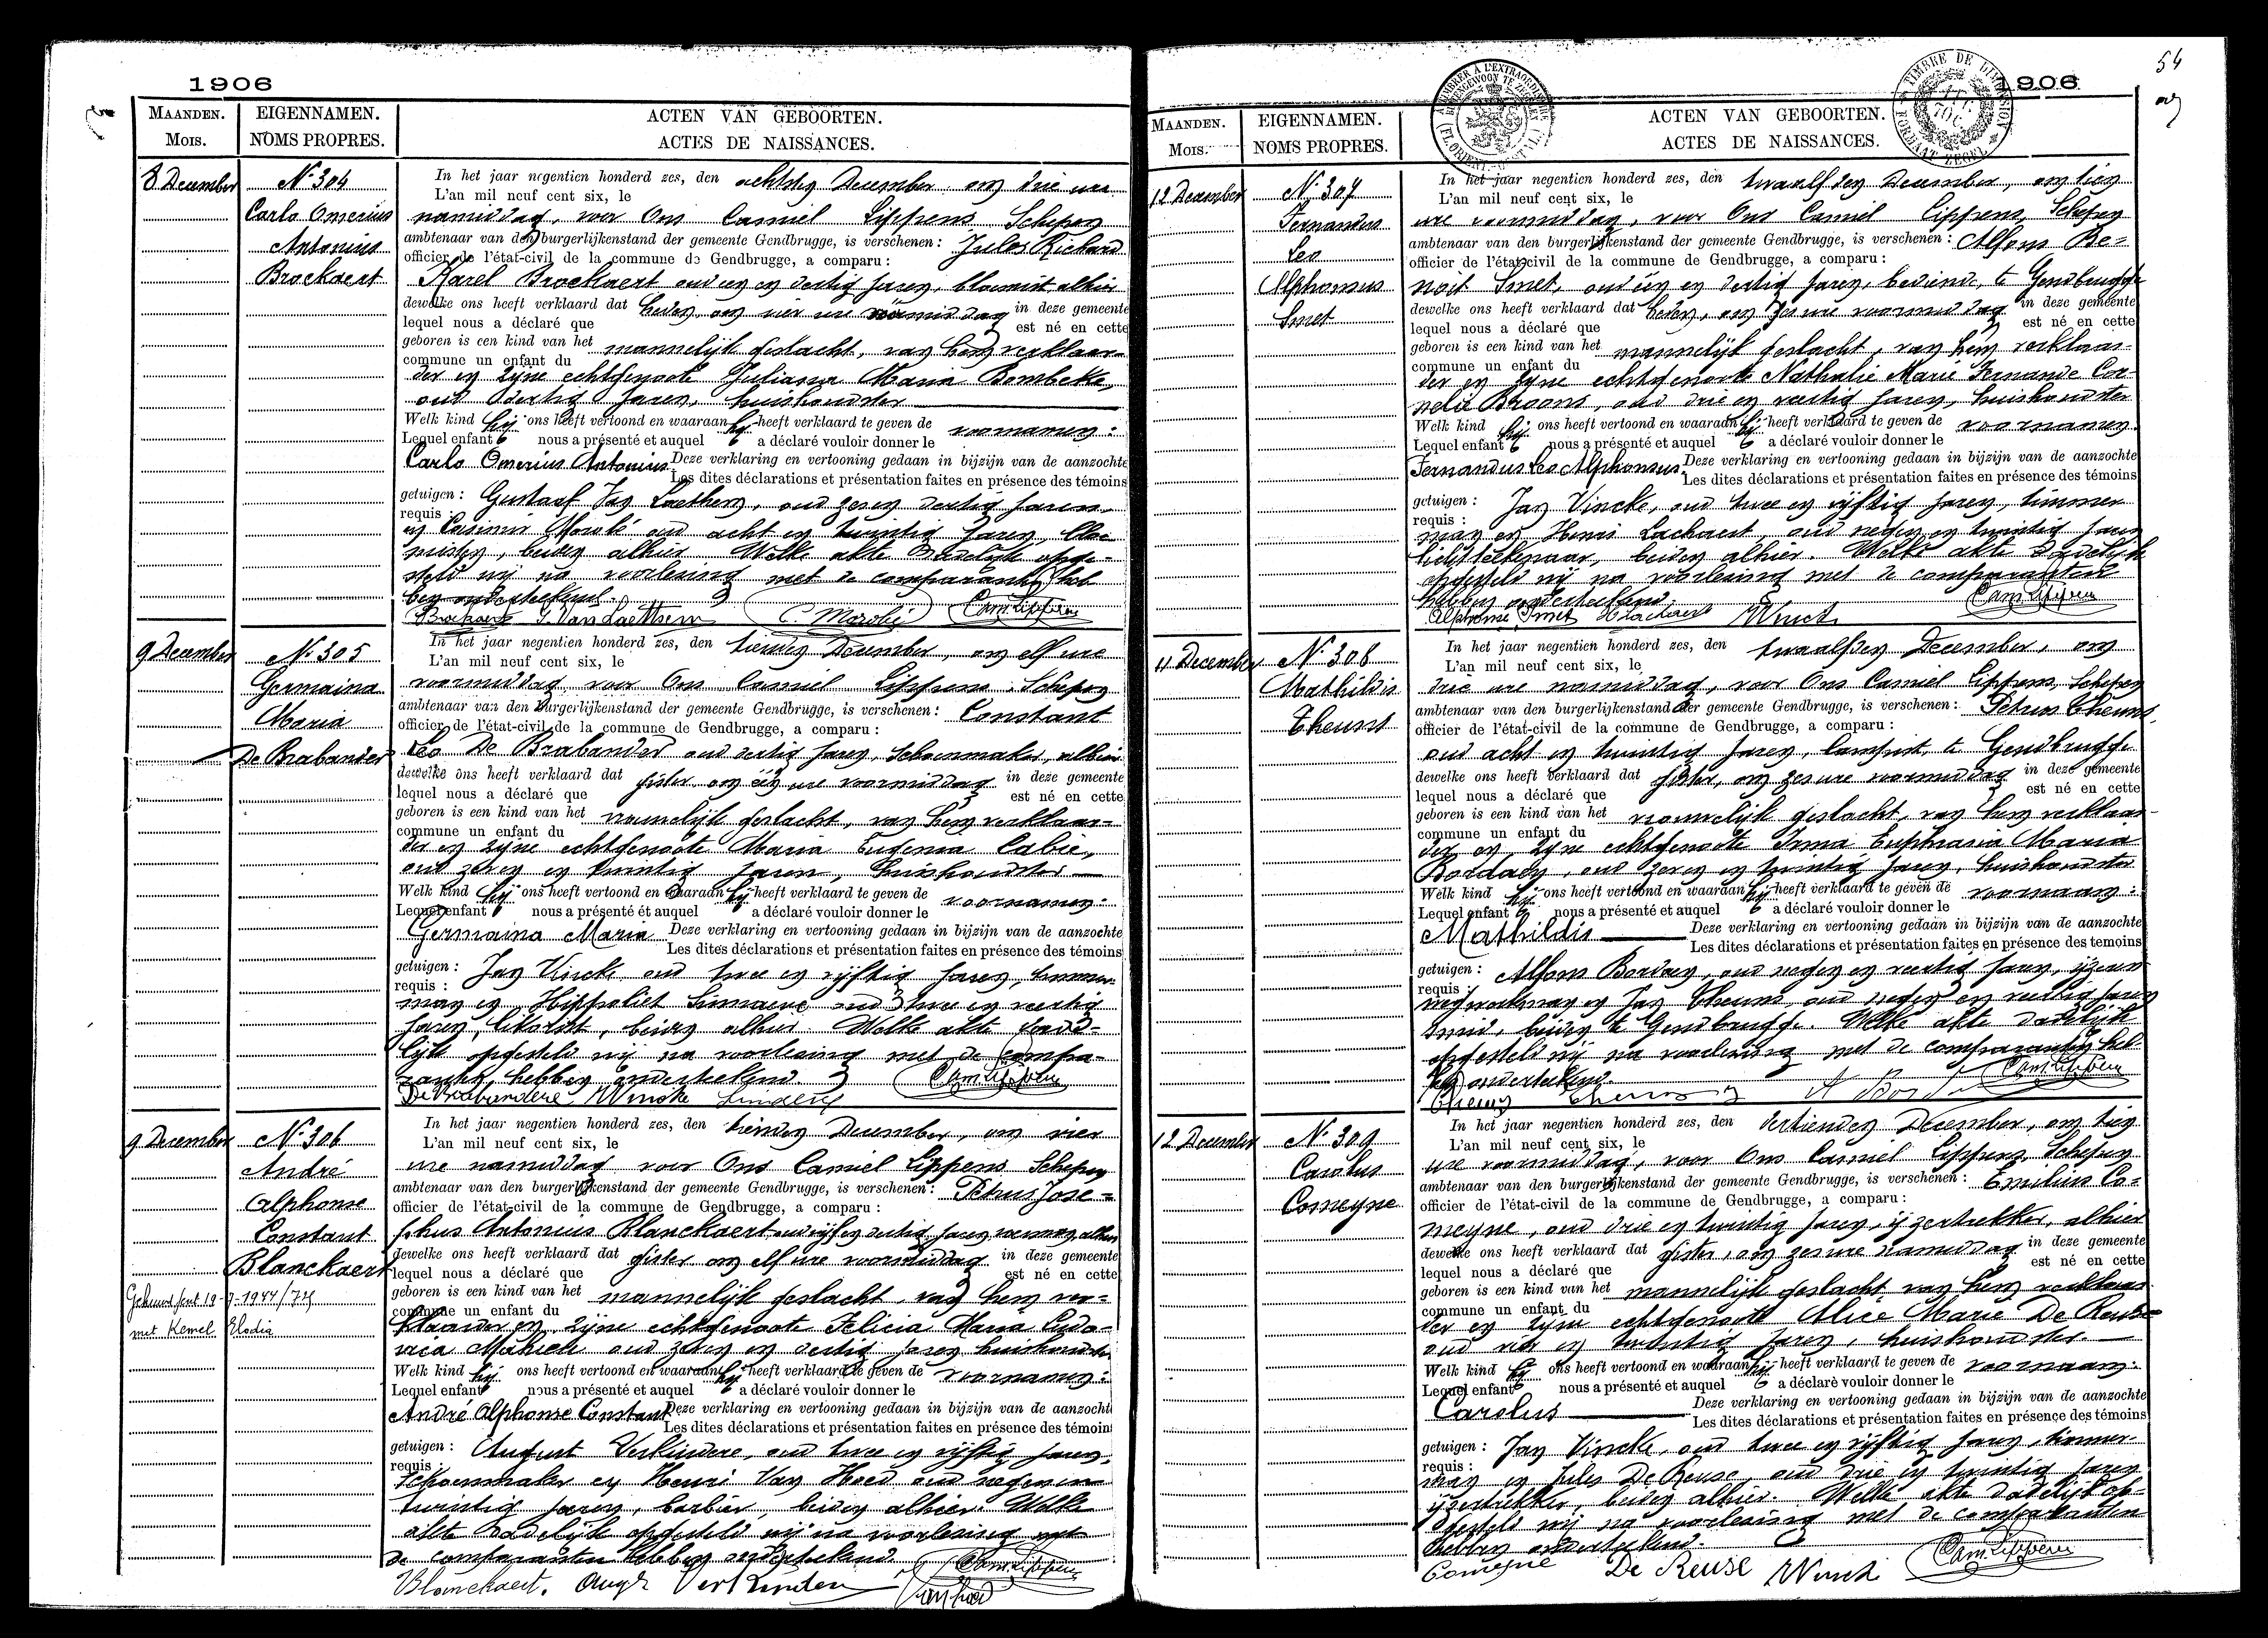 1906
MAANDEN.
MOIS.
EIGENNAMEN.
NOMS PROPRES.
ACTEN VAN GEBOORTEN.
ACTES DE NAISSANCES.
8 December
N° 304
Carlo Omerius
Antonius
Brockaert
In het jaar negentien honderd zes, den achtsten December, om drie ure
L'an mil neuf cent six, le
namiddag, voor Ons Camiel Lippens Schepen
ambtenaar van den burgerlijkenstand der gemeente Gendbrugge, is verschenen: Jules Richard
officier de l'état-civil de la commune de Gendbrugge, a comparu:
Karel Brockaert oud een en dertig jaren, bloemist alhier
dewelke ons heeft verklaard dat heden, om vier ure voormiddag in deze gemeente
lequel nous a déclaré que est né en cette
geboren is een kind van het mannelijk geslacht, van hem verklaar-
commune un enfant du
der en zijne echtgenoote Juliana Maria Bombeke,
oud dertig jaren, huishoudster
Welk kind hij ons heeft vertoond en waaraan hij heeft verklaard te geven de voornamen:
Lequel enfant nous a présenté et auquel a déclaré vouloir donner le
Carlo Omerius Antonius Deze verklaring en vertooning gedaan in bijzijn van de aanzochte
Les dites déclarations et présentation faites en présence des témoins
getuigen: Gustaaf Van Laethem, oud zeven dertig jaren
requis:
en Casimir Morolé oud acht en twintig jaren, bloe-
misten, beiden alhier. Welke akte dadelijk opge-
steld wij na voorlezing met de comparanten heb
ben onderteekend.
Brockaert G. Van Laethem C. Morolé Cam. Lippens
9 December
N° 305
Germaina
Maria
De Brabander
In het jaar negentien honderd zes, den tienden December, om elf ure
L'an mil neuf cent six, le
voormiddag voor Ons Camiel Lippens Schepen
ambtenaar van den burgerlijkenstand der gemeente Gendbrugge, is verschenen: Constant
officier de l'état-civil de la commune de Gendbrugge, a comparu:
Leo De Brabander oud dertig jaren, schoenmaker, alhier
dewelke ons heeft verklaard dat gister om één ure voormiddag in deze gemeente
lequel nous a déclaré que est né en cette
geboren is een kind van het vrouwelijk geslacht, van hem verklaar-
commune un enfant du
der en zijne echtgenoote Maria Eugenia Cabie,
oud zeven en twintig jaren, huishoudster
Welk kind hij ons heeft vertoond en waaraan hij heeft verklaard te geven de voornamen:
Lequel enfant nous a présenté et auquel a déclaré vouloir donner le
Germaina Maria Deze verklaring en vertooning gedaan in bijzijn van de aanzochte
Les dites déclarations et présentation faites en présence des témoins
getuigen: Jan Vincke oud twee en vijftig jaren, timmer-
requis:
man en Hippoliet oud twee en veertig
jaren, beiden alhier. Welke akte dade-
lijk opgesteld wij na voorlezing met de compa-
ranten, hebben onderteekend.
De Brabandere Wincke Cam. Lippens
9 December
N° 306
André
Alphonse
Constant
Blanckaert
Gehuwd Gent 19-7-1944/74
met Kemel Elodia
In het jaar negentien honderd zes, den tienden December, om vier
L'an mil neuf cent six, le
ure namiddag voor Ons Camiel Lippens Schepen
ambtenaar van den burgerlijkenstand der gemeente Gendbrugge, is verschenen: Petrus Jose-
officier de l'état-civil de la commune de Gendbrugge, a comparu:
phus Antonius Blanckaert oud vijf en dertig jaren alhier
dewelke ons heeft verklaard dat gister om elf ure voormiddag in deze gemeente
lequel nous a déclaré que est né en cette
geboren is een kind van het mannelijk geslacht, van hem ver-
commune un enfant du
klaarder en zijne echtgenoote Felicia Maria Ludo-
vica oud zeven en dertig jaren huishoudster
Welk kind hij ons heeft vertoond en waaraan hij heeft verklaard te geven de voornamen:
Lequel enfant nous a présenté et auquel a déclaré vouloir donner le
André Alphonse Constant Deze verklaring en vertooning gedaan in bijzijn van de aanzocht
Les dites déclarations et présentation faites en présence des témoin
getuigen: August Verkindere, oud twee en vijftig jaren,
requis:
schoenmaker en Henri Van Hoed oud negen en
twintig jaren, barbier, beiden alhier. Welke
akte dadelijk opgesteld wij na voorlezing met
de comparanten hebben onderteekend.
Blanckaert. Aug. Verkinderen Van Hoed Cam. Lippens
54
906
MAANDEN.
MOIS.
EIGENNAMEN.
NOMS PROPRES.
ACTEN VAN GEBOORTEN.
ACTES DE NAISSANCES.
12 December
N° 307
Fernandus
Leo
Alphonsus
Smet
In het jaar negentien honderd zes, den twaalfden December, om tien
L'an mil neuf cent six, le
ure voormiddag, voor Ons Camiel Lippens, Schepen
ambtenaar van den burgerlijkenstand der gemeente Gendbrugge, is verschenen: Alfons Be-
officier de l'état-civil de la commune de Gendbrugge, a comparu:
noit Smet, oud één en dertig jaren, bediende, te Gendbrugge
dewelke ons heeft verklaard dat heden, om zes ure voormiddag in deze gemeente
lequel nous a déclaré que est né en cette
geboren is een kind van het mannelijk geslacht, van hem verklaar-
commune un enfant du
der en zijne echtgenoote Nathalie Marie Fernande Cor-
nelie Braons, oud drie en veertig jaren, huishoudster
Welk kind hij ons heeft vertoond en waaraan hij heeft verklaard te geven de voornamen:
Lequel enfant nous a présenté et auquel a déclaré vouloir donner le
Fernandus Leo Alphonsus Deze verklaring en vertooning gedaan in bijzijn van de aanzochte
Les dites déclarations et présentation faites en présence des témoins
getuigen: Jan Vincke, oud twee en vijftig jaren, timmer
requis:
man en Henri Lachaert, oud negen en twintig jaren
lichtteekenaar, beiden alhier. Welke akte dadelijk
opgesteld wij na voorlezing met de comparanten
hebben onderteekend.
Alphonse Smet Lachaert Winck Cam. Lippens
11 December
N° 308
Mathildis
Theunis
In het jaar negentien honderd zes, den twaalfden December, om
L'an mil neuf cent six, le
drie ure namiddag, voor Ons Camiel Lippens, Schepen
ambtenaar van den burgerlijkenstand der gemeente Gendbrugge, is verschenen: Petrus Theunis,
officier de l'état-civil de la commune de Gendbrugge, a comparu:
oud acht en twintig jaren, lampist, te Gendbrugge
dewelke ons heeft verklaard dat gister, om zes ure voormiddag in deze gemeente
lequel nous a déclaré que est né en cette
geboren is een kind van het vrouwelijk geslacht, van hem verklaar-
commune un enfant du
der en zijne echtgenoote Irma Euphrasia Maria
Bordaey, oud zeven en twintig jaren, huishoudster
Welk kind hij ons heeft vertoond en waaraan hij heeft verklaard te geven de voornaam:
Lequel enfant nous a présenté et auquel a déclaré vouloir donner le
Mathildis Deze verklaring en vertooning gedaan in bijzijn van de aanzochte
Les dites déclarations et présentation faites en présence des temoins
getuigen: Alfons Bordaey, oud negen en veertig jaren, ijzeren
requis:
wegwerkman en Jan Theunis, oud negen en veertig jaren
smid, beiden te Gendbrugge. Welke akte dadelijk
opgesteld wij na voorlezing met de comparanten heb
ben onderteekend.
Theunis Theunis A Bord Cam. Lippens
12 December
N° 309
Carolus
Comeyne
In het jaar negentien honderd zes, den dertienden December, om tien
L'an mil neuf cent six, le
ure voormiddag, voor Ons Camiel Lippens, Schepen
ambtenaar van den burgerlijkenstand der gemeente Gendbrugge, is verschenen: Emilius Co-
officier de l'état-civil de la commune de Gendbrugge, a comparu:
meyne, oud drie en twintig jaren, ijzertrekker, alhier
dewelke ons heeft verklaard dat gister, om zes ure namiddag in deze gemeente
lequel nous a déclaré que est né en cette
geboren is een kind van het mannelijk geslacht, van hem verklaar
commune un enfant du
der en zijne echtgenoote Alice Marie De Reuse
oud vier en twintig jaren, huishoudster.
Welk kind hij ons heeft vertoond en waaraan hij heeft verklaard te geven de voornaam:
Lequel enfant nous a présenté et auquel a déclaré vouloir donner le
Carolus Deze verklaring en vertooning gedaan in bijzijn van de aanzochte
Les dites déclarations et présentation faites en présence des témoins
getuigen: Jan Vincke, oud twee en vijftig jaren, timmer
requis:
man en Jules De Reuse, oud drie en twintig jaren
ijzertrekker, beiden alhier. Welke akte dadelijk op-
gesteld wij na voorlezing met de comparanten
hebben onderteekend.
Comeyne De Reuse Winck Cam. Lippens